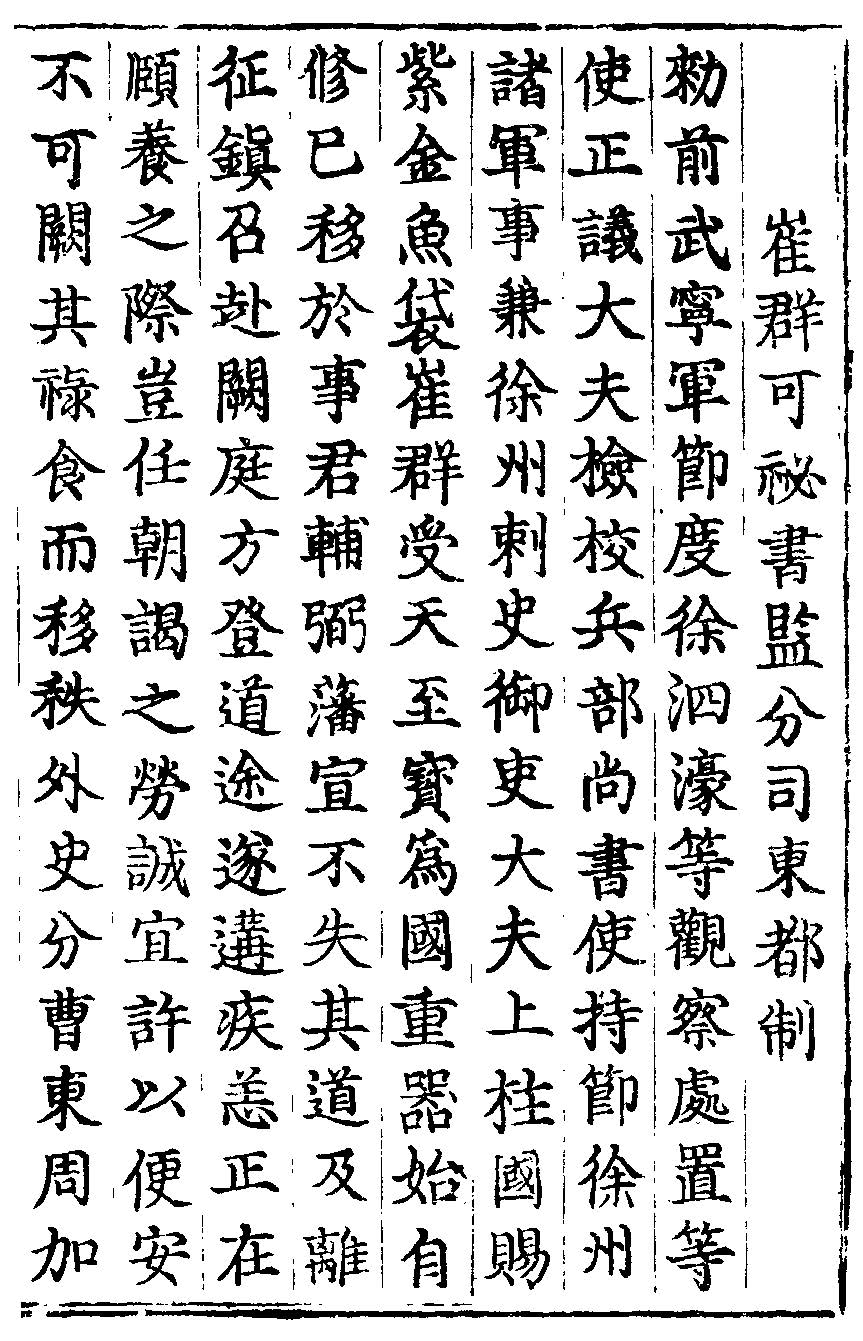 崔群可祕書監分司東都制
勑前武寧軍節度徐泗濠等觀察處置等
使正議大夫檢校兵部尚書使持節徐州
諸軍事兼徐州刺史御吏大夫上柱國賜
紫金魚袋崔群受天至寶爲國重器始自
修已移於事君輔弼藩宣不失其道及離
征鎮召赴闕庭方登道途遂遘疾恙正在
頤養之際豈任朝謁之勞誠宜許以便安
不可闕其祿食而移秩外史分曹東周加